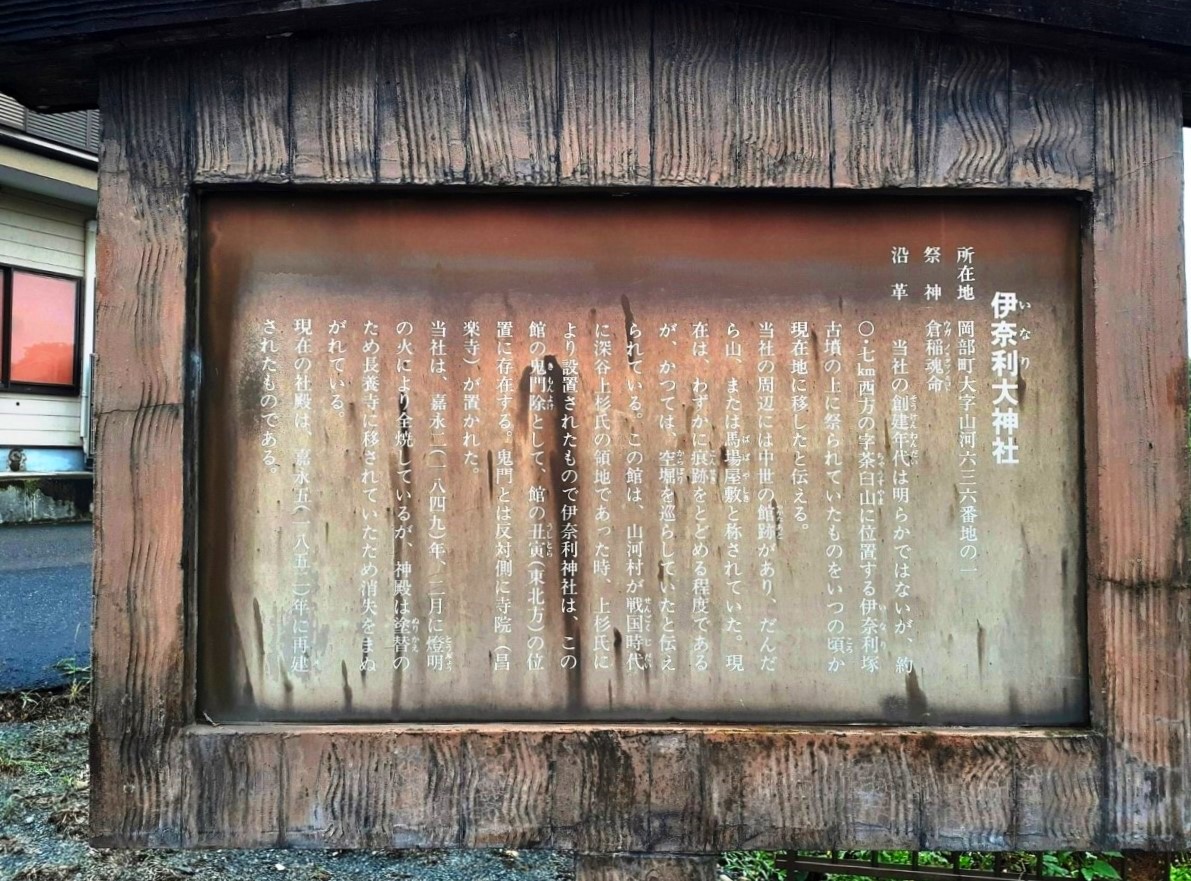 伊奈利大神社
所在地　岡部町大字山河六三六番地の一
祭　神　倉稲魂命
沿　革　当社の創建年代は明らかではないが、約
〇・七km西方の字茶臼山に位置する伊奈利塚
古墳の上に祭られていたものをいつの頃か
現在地に移したと伝える。
当社の周辺には中世の館跡があり、だんだ
ら山、または馬場屋敷と称されていた。現
在は、わずかに痕跡をとどめる程度である
が、かつては、空堀を巡らしていたと伝え
られている。この館は、山河村が戦国時代
に深谷上杉氏の領地であった時、上杉氏に
より設置されたもので伊奈利神社は、この
館の鬼門除として、館の丑寅（東北方）の位
置に存在する。鬼門とは反対側に寺院（昌
楽寺）が置かれた。
当社は、嘉永二（一八四九）年、二月に燈明
の火により全焼しているが、神殿は塗替の
ため長養寺に移されていたため消失をまぬ
がれている。
現在の社殿は、嘉永五（一八五二）年に再建
されたものである。